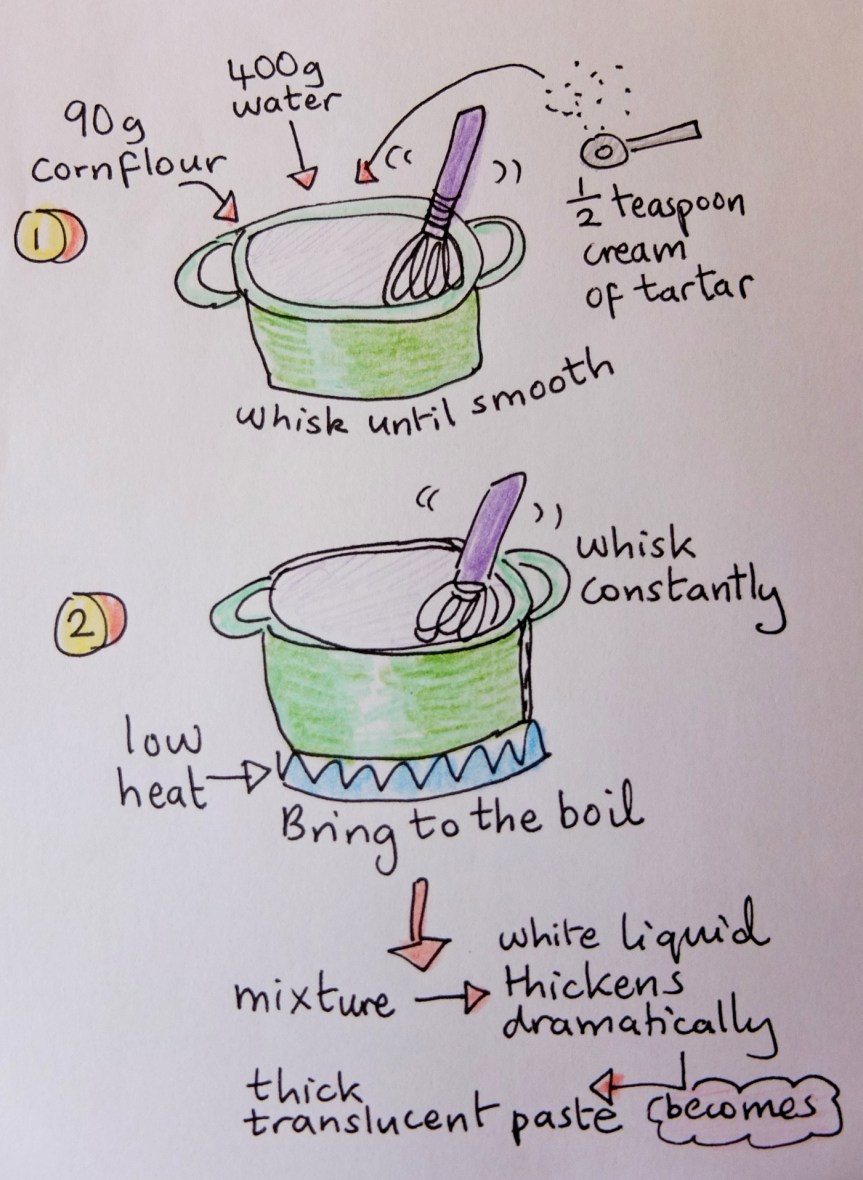 400g
water
90g
cornflour
1
1/2 teaspoon
cream
of tartar
whisk until smooth
2
whisk
constantly
low
heat
Bring to the boil
mixture
white liquid
thickens
dramatically
becomes
thick
translucent paste